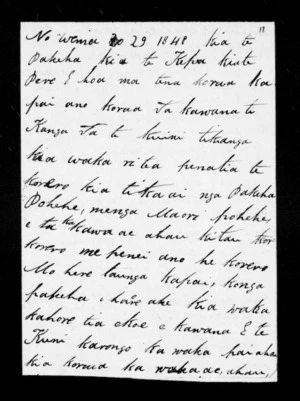 No wenia 20 29 1848 Kia te
Pakeha Kia te Kepa Kiate
Pere E hoa ma tena korua ka
pai ano korua Ta kawana te
Kanga Ta te Kuini tikanga
Kia waka penatia te
korero kia te nga Pakeha
Pohehe, menga Maori pohehe,
e ta Kawa ae ahau kitau kor
korero me penei ano he korero
Mo here kapai, konga
pakeha e haere ake Kia waka
kahore tia okoe e kawana E te
Kuni karongo ka waka pai ahau
kia korua ka waka,ae, ahau,